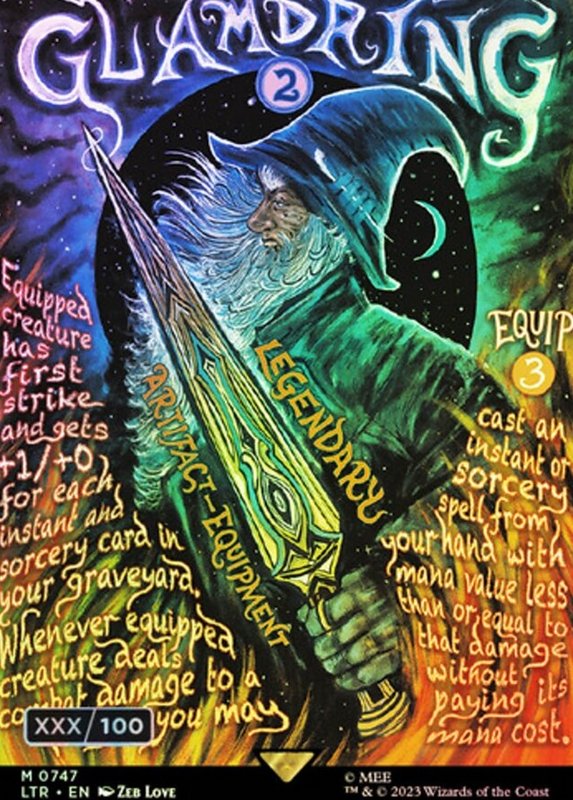 GLAMDRING
2
Equipped
creature
has
first
strike
and gets
+1/+0
for each
instant and
sorcery card in
your graveyard.
Whenever equipped
creature deals
combat damage to a
you may
LEGENDARY
ARTIFACT-EQUIPMENT
EQUIP
3
cast an
instant or
sorcery
spell from
your hand with
mana value less
than or equal to
that damage
without
paying its
mana cost.
XXX/100
M 0747
LTR • EN ZEB LOVE
© MEE
™ & © 2023 Wizards of the Coast